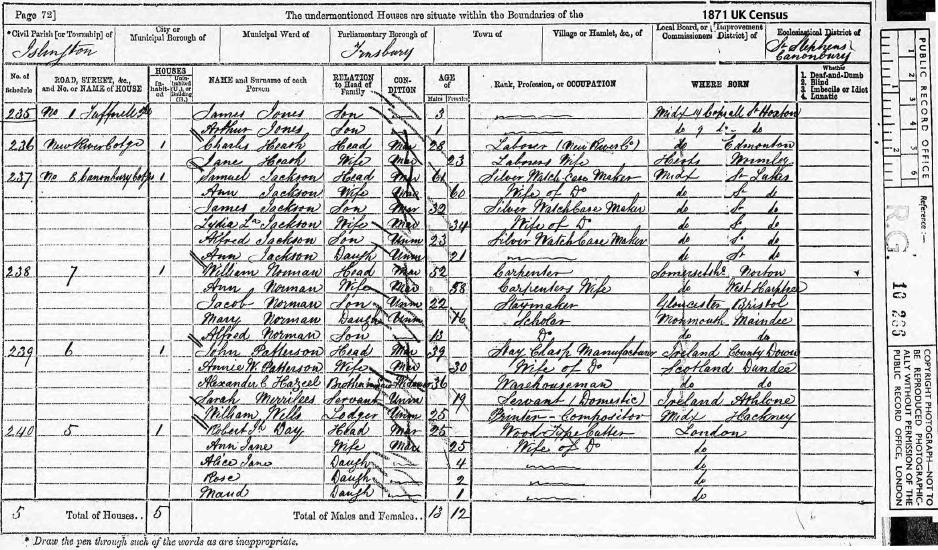 Page 72]
The undermentioned Houses are situate within the Boundaries of the
1871 UK Census
*Civil Parish [or Township] of
City or Municipal Borough of
Municipal Ward of
Parliamentary Borough of
Town of
Village or Hamlet, &c., of
Local Board, or [Improvement Commissioners District] of
Ecclesiastical District of
Islington
Finsbury
St Stephens Canonbury
No. of Schedule
ROAD, STREET, &c., and No. or NAME of HOUSE
HOUSES
Inhabited
Uninhabited (U.), or Building (B.)
NAME and Surname of each Person
RELATION to Head of Family
CONDITION
AGE of
Males
Females
Rank, Profession, or OCCUPATION
WHERE BORN
Whether
1. Deaf-and-Dumb
2. Blind
3. Imbecile or Idiot
4. Lunatic
235 No 1 James Jones Son 3 Midx Hoxton
Arthur Jones Son 1 do do
236 New River Cotge 1 Charles Heath Head Mar 28 Labour (New River Co) do Edmonton
Jane Heath Wife Mar 23 Laborers Wife Herts
237 No 8 Canonbury Cotgs 1 Samuel Jackson Head Mar 61 Silver Watch Case Maker Midx St Lukes
Ann Jackson Wife Mar 60 Wife of Do do St do
James Jackson Son Mar 32 Silver Watch Case Maker do St do
Lydia Jackson Wife Mar 34 Wife of Do do St do
Alfred Jackson Son Unm 23 Silver Watch Case Maker do St do
Ann Jackson Daugh Unm 21 do St do
238 7 1 William Norman Head Mar 52 Carpenter Somersetshe Norton
Ann Norman Wife Mar 58 Carpenters Wife do West
Jacob Norman Son Unm 22 Staymaker Gloucester Bristol
Mary Norman Daugh Unm 16 Scholar Monmouth Maindee
Alfred Norman Son 13 Do do do
239 6 1 John Patterson Head Mar 39 Stay Clasp Manufacturer Ireland County Down
Annie W. Patterson Wife Mar 30 Wife of Do Scotland Dundee
Alexander C Widower 36 Warehouseman do do
Sarah Servant Unm 19 Servant (Domestic) Ireland Athlone
William Wells Lodger Unm 25 Printer - Compositor Midx Hackney
240 5 1 Robert Day Head Mar 25 Wood Type Cutter London
Ann Jane Wife Mar 25 Wife of Do do
Alice Jane Daugh 4 do
Rose Daugh 2 do
Maud Daugh 1 do
5 Total of Houses.. 5 Total of Males and Females.. 13 12
* Draw the pen through such of the words as are inappropriate.
PUBLIC RECORD OFFICE
1 2 3 4 5 6
Reference :-
R.G. 10
COPYRIGHT PHOTOGRAPH—NOT TO BE REPRODUCED PHOTOGRAPHICALLY WITHOUT PERMISSION OF THE PUBLIC RECORD OFFICE, LONDON